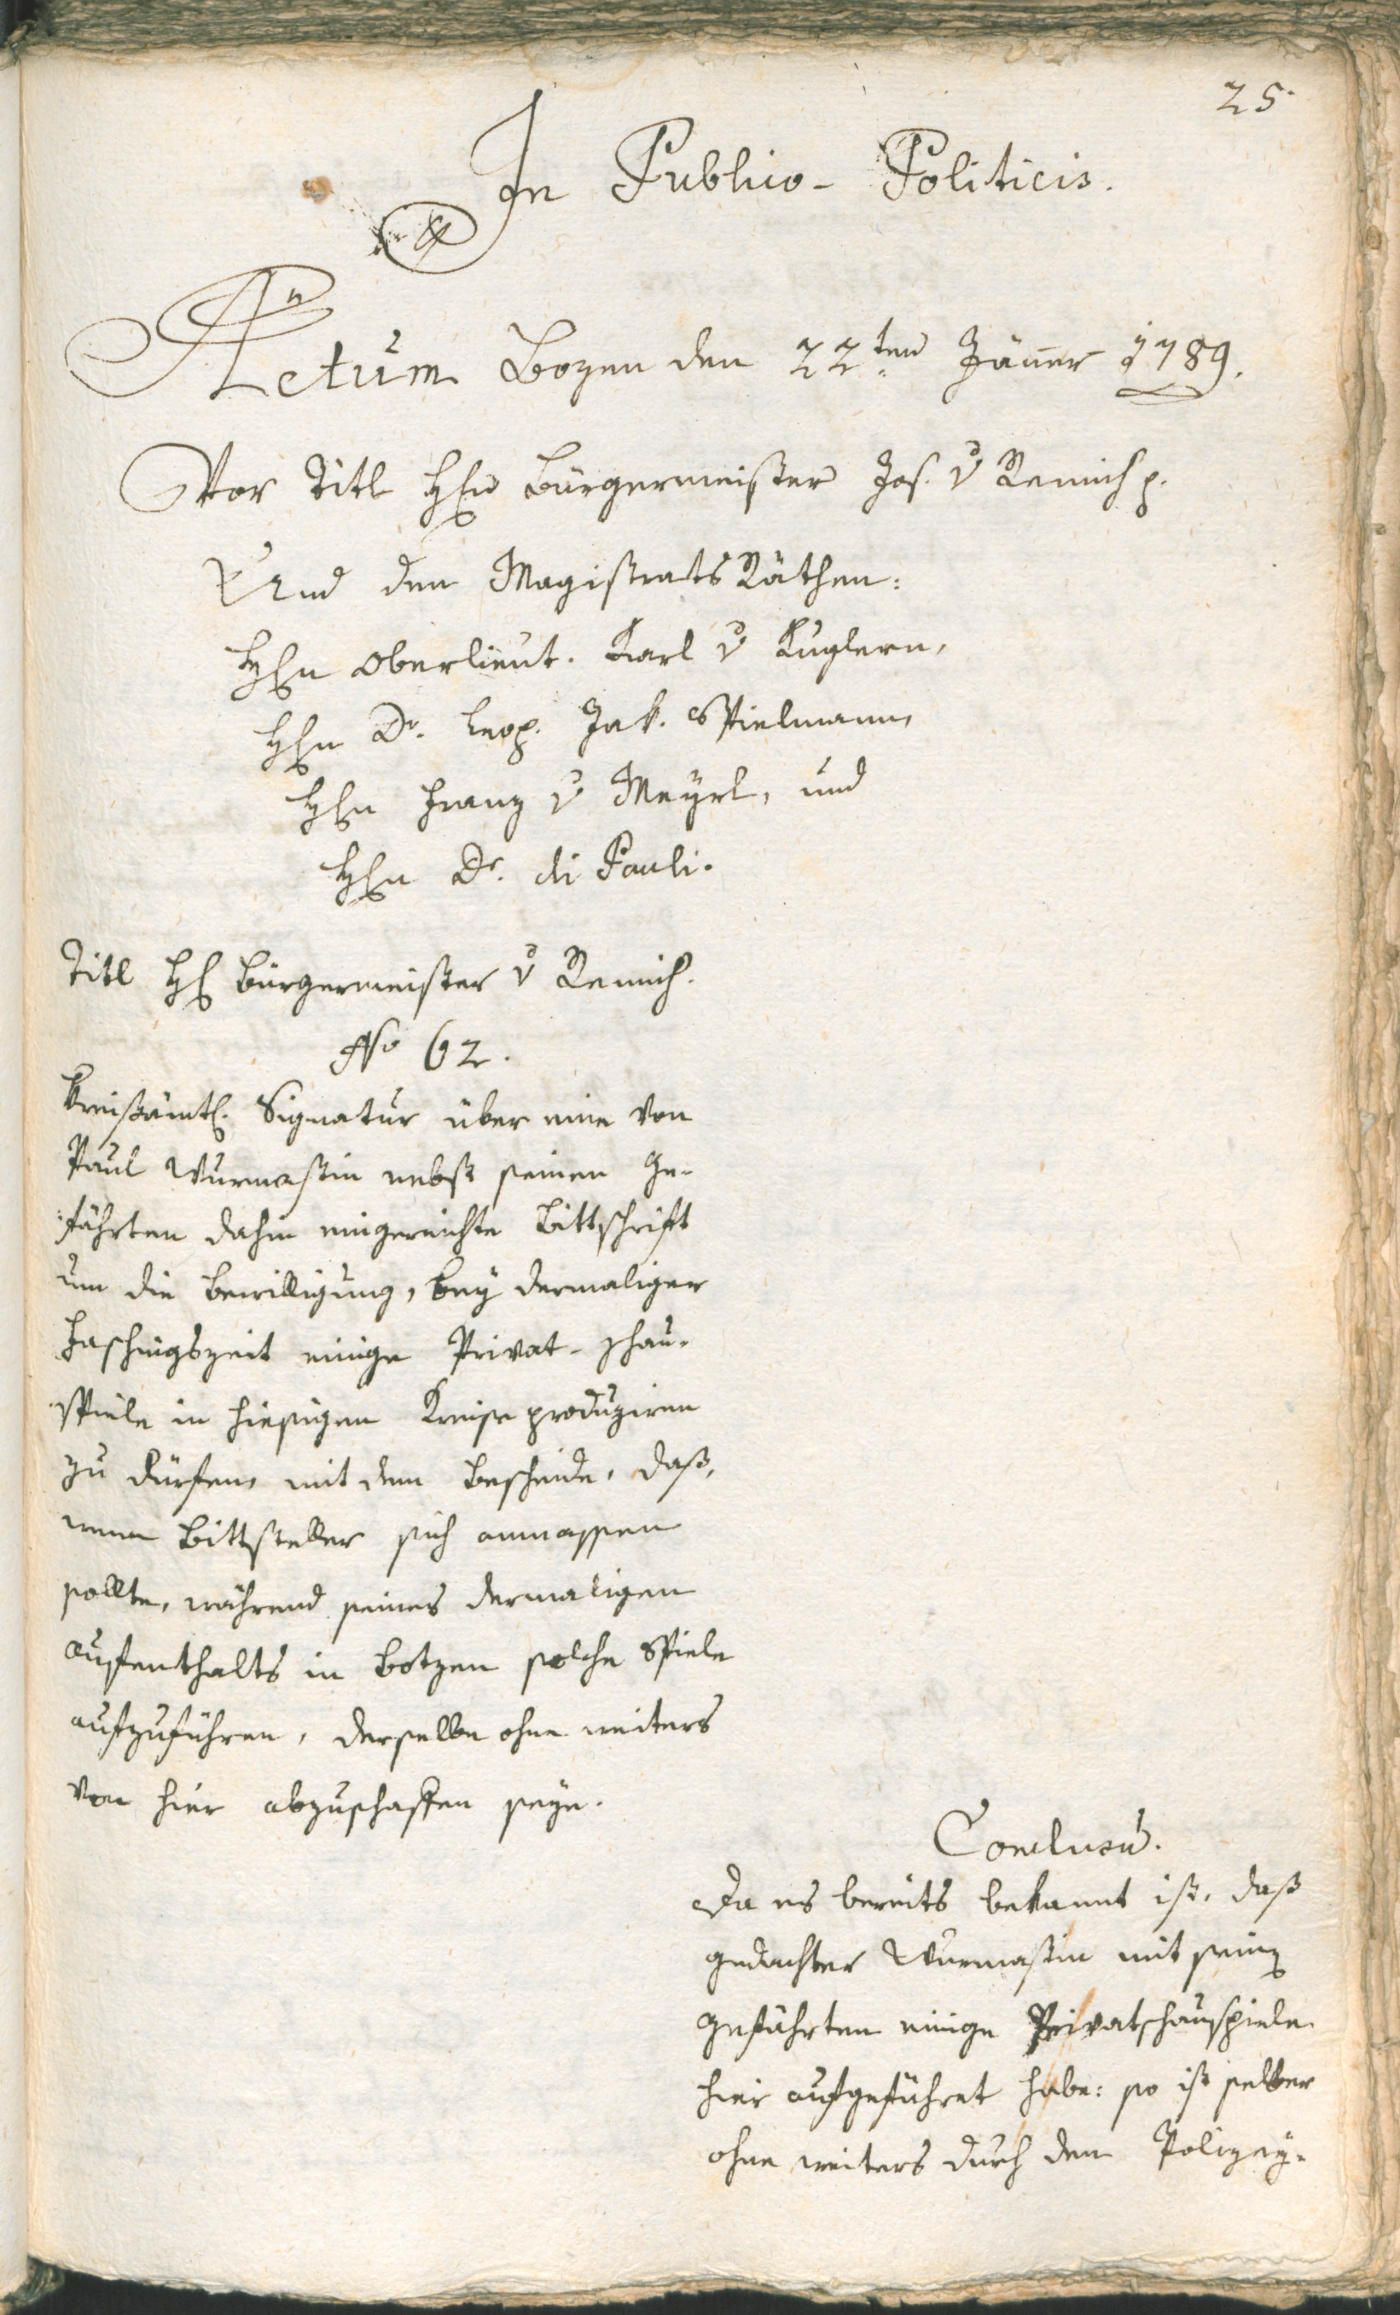 25.
In Publico-Politicis.
Actum Bozen den 22ten Jäner 1789.
Vor Titl Hℓn Bürgermeister Jos. v Remich p.
Und den Magistrats Räthen:
Hℓn Oberlieut. Karl v Kuglern,
Hℓn Dr. Leop. Jak. Spielmann,
Hℓn Franz v Mayrl, und
Hℓn Dr. di Pauli.
Titl Hℓ Bürgermeister v Remich.
No 62.
Kreisämtl. Signatur über eine von
Paul Wurmastin nebst seinen Ge-
fährten dahin eingereichte Bittschrift
um die Bewilligung, bey dermaliger
Faschingszeit einige Privat-Schau-
spiele in hiesigem Kreise produziren
zu dürfen, mit dem Bescheide, daß,
wenn Bittsteller sich anmassen
sollte, während seines dermaligen
Aufenthalts in Botzen solche Spiele
aufzuführen, derselbe ohne weiters
von hier abzuschaffen seye.
Conclusum.
Da es bereits bekannt ist, daß
gedachter Wurmastin mit seinen
Gefährten einige Privatschauspiele
hier aufgeführet habe: so ist selber
ohne weiters durch den Polizey-